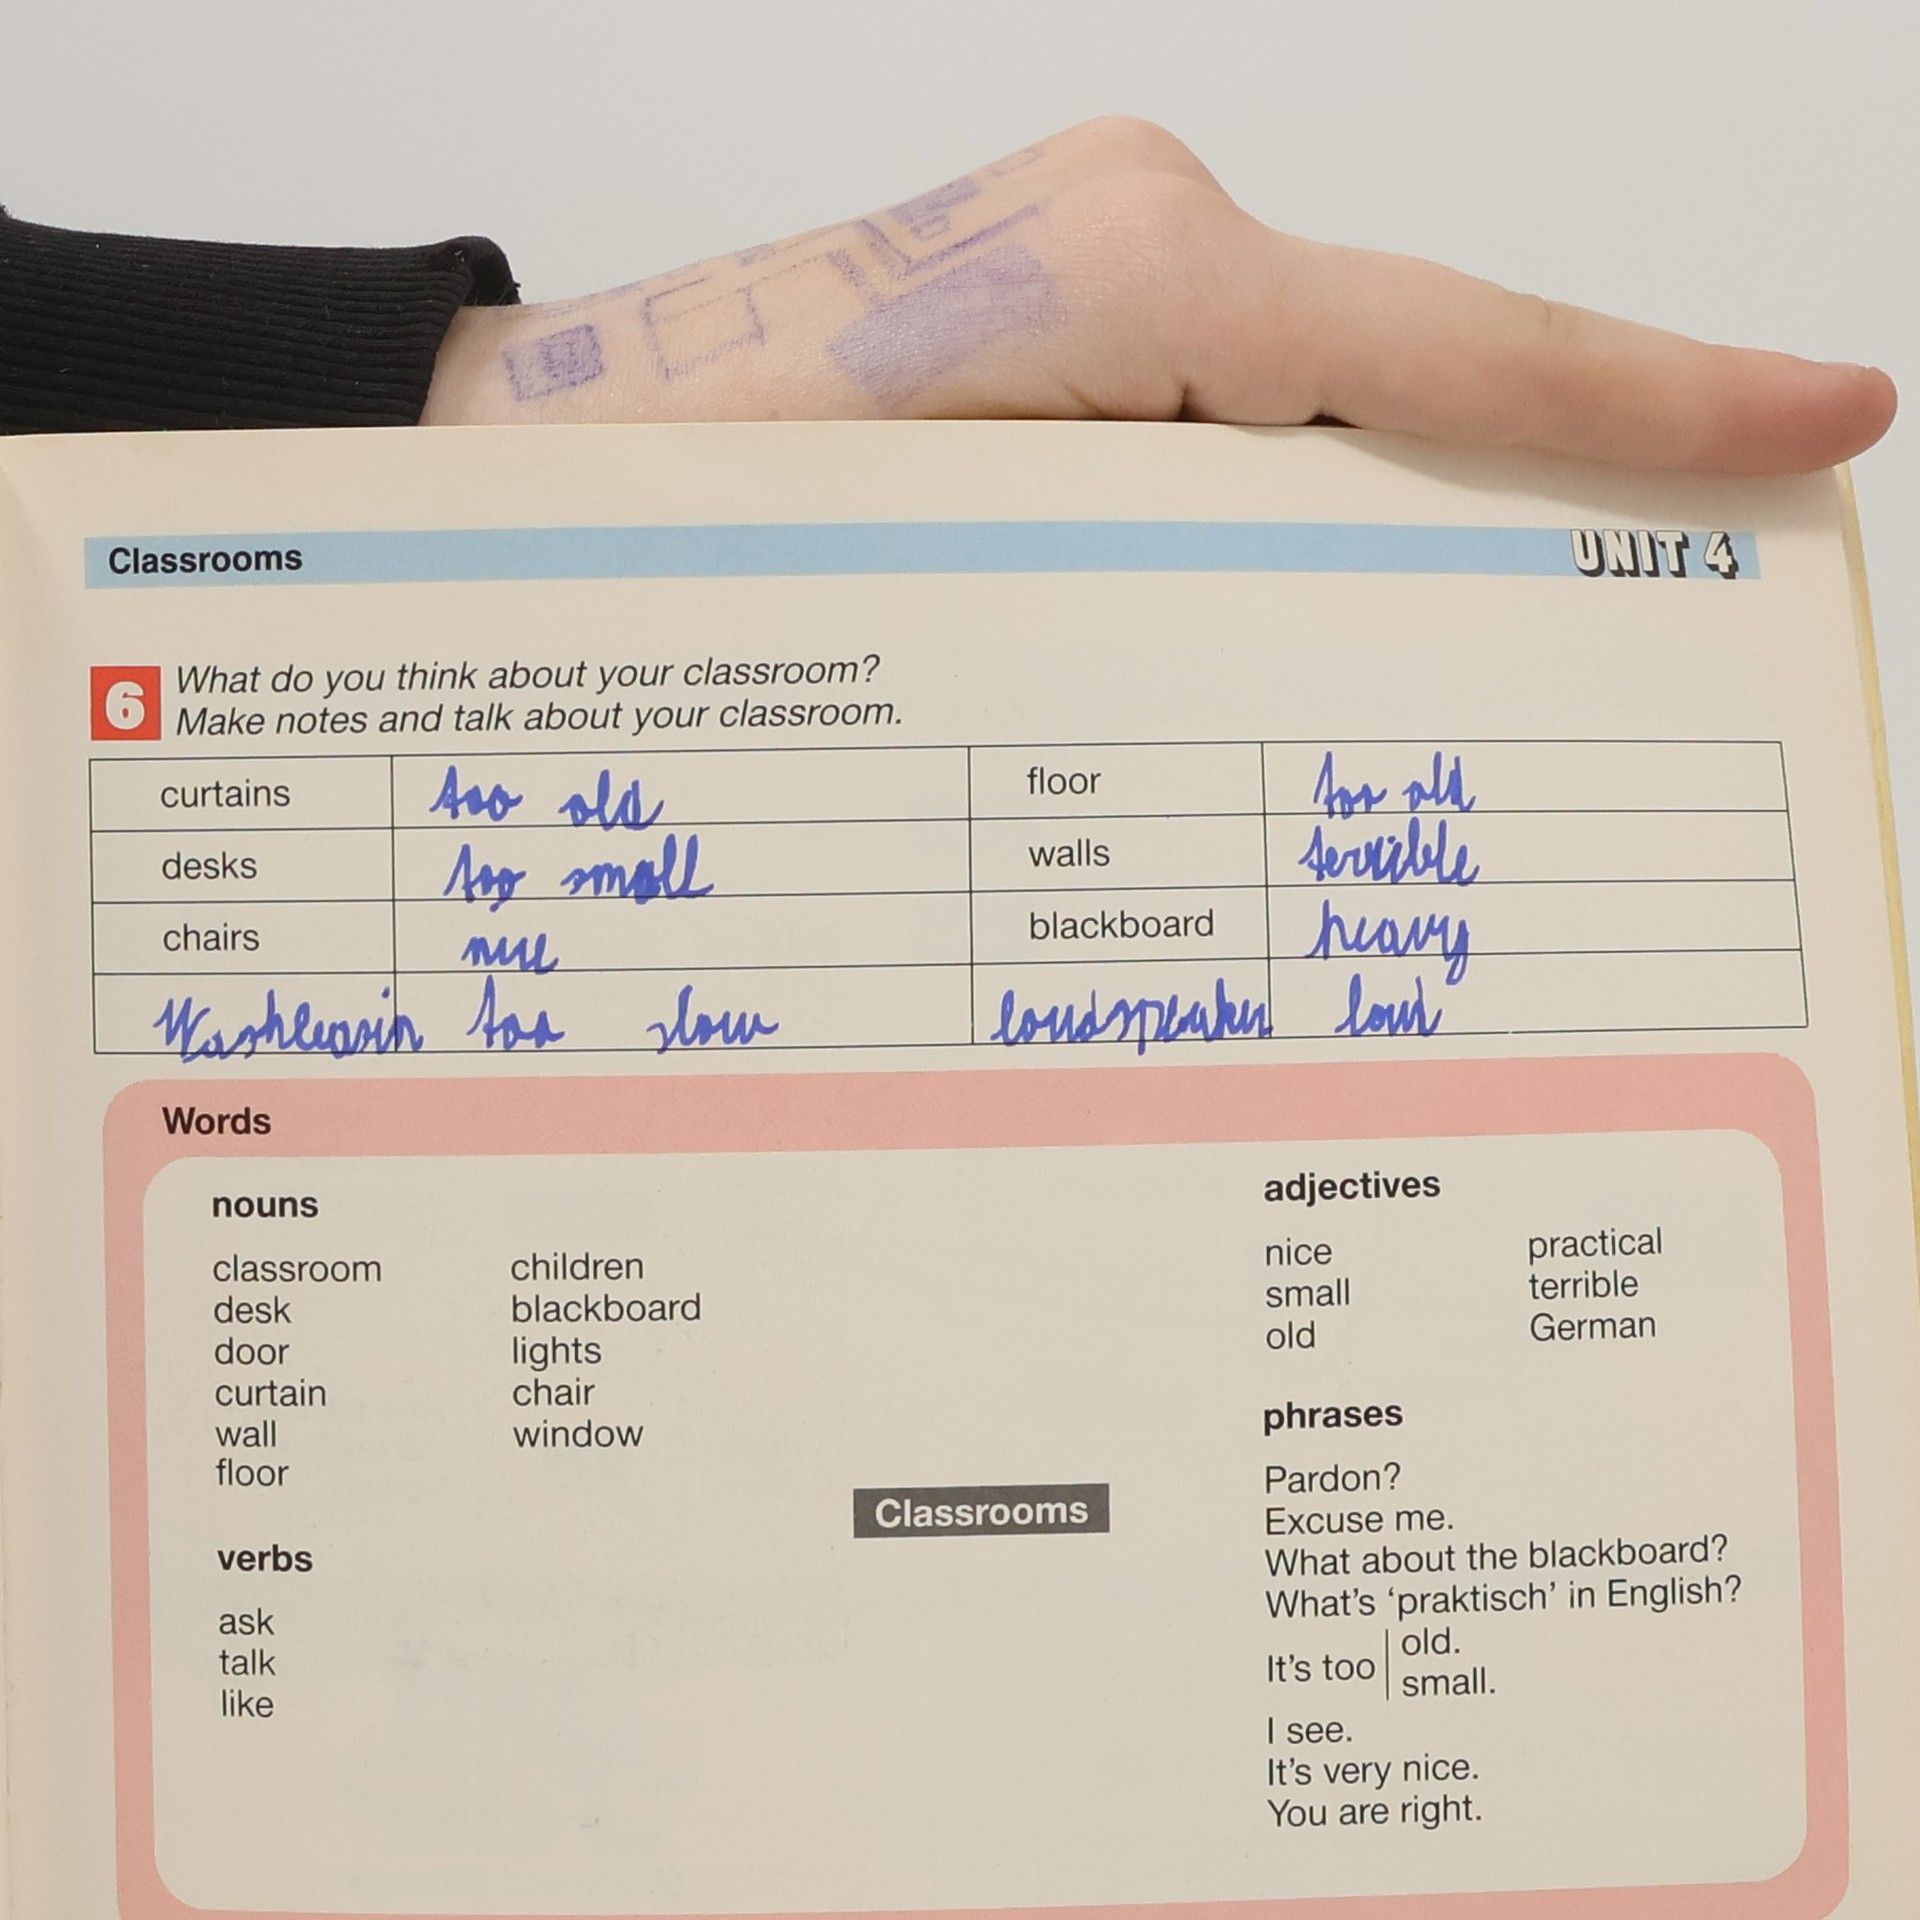 Classrooms UNIT 4
6 What do you think about your classroom?
Make notes and talk about your classroom.
curtains too old floor too old
desks too small walls terrible
chairs nice blackboard heavy
Washbasin too slow loudspeaker loud
Words
nouns
classroom children
desk blackboard
door lights
curtain chair
wall window
floor
verbs
ask
talk
like
Classrooms
adjectives
nice practical
small terrible
old German
phrases
Pardon?
Excuse me.
What about the blackboard?
What's 'praktisch' in English?
It's too old.
small.
I see.
It's very nice.
You are right.